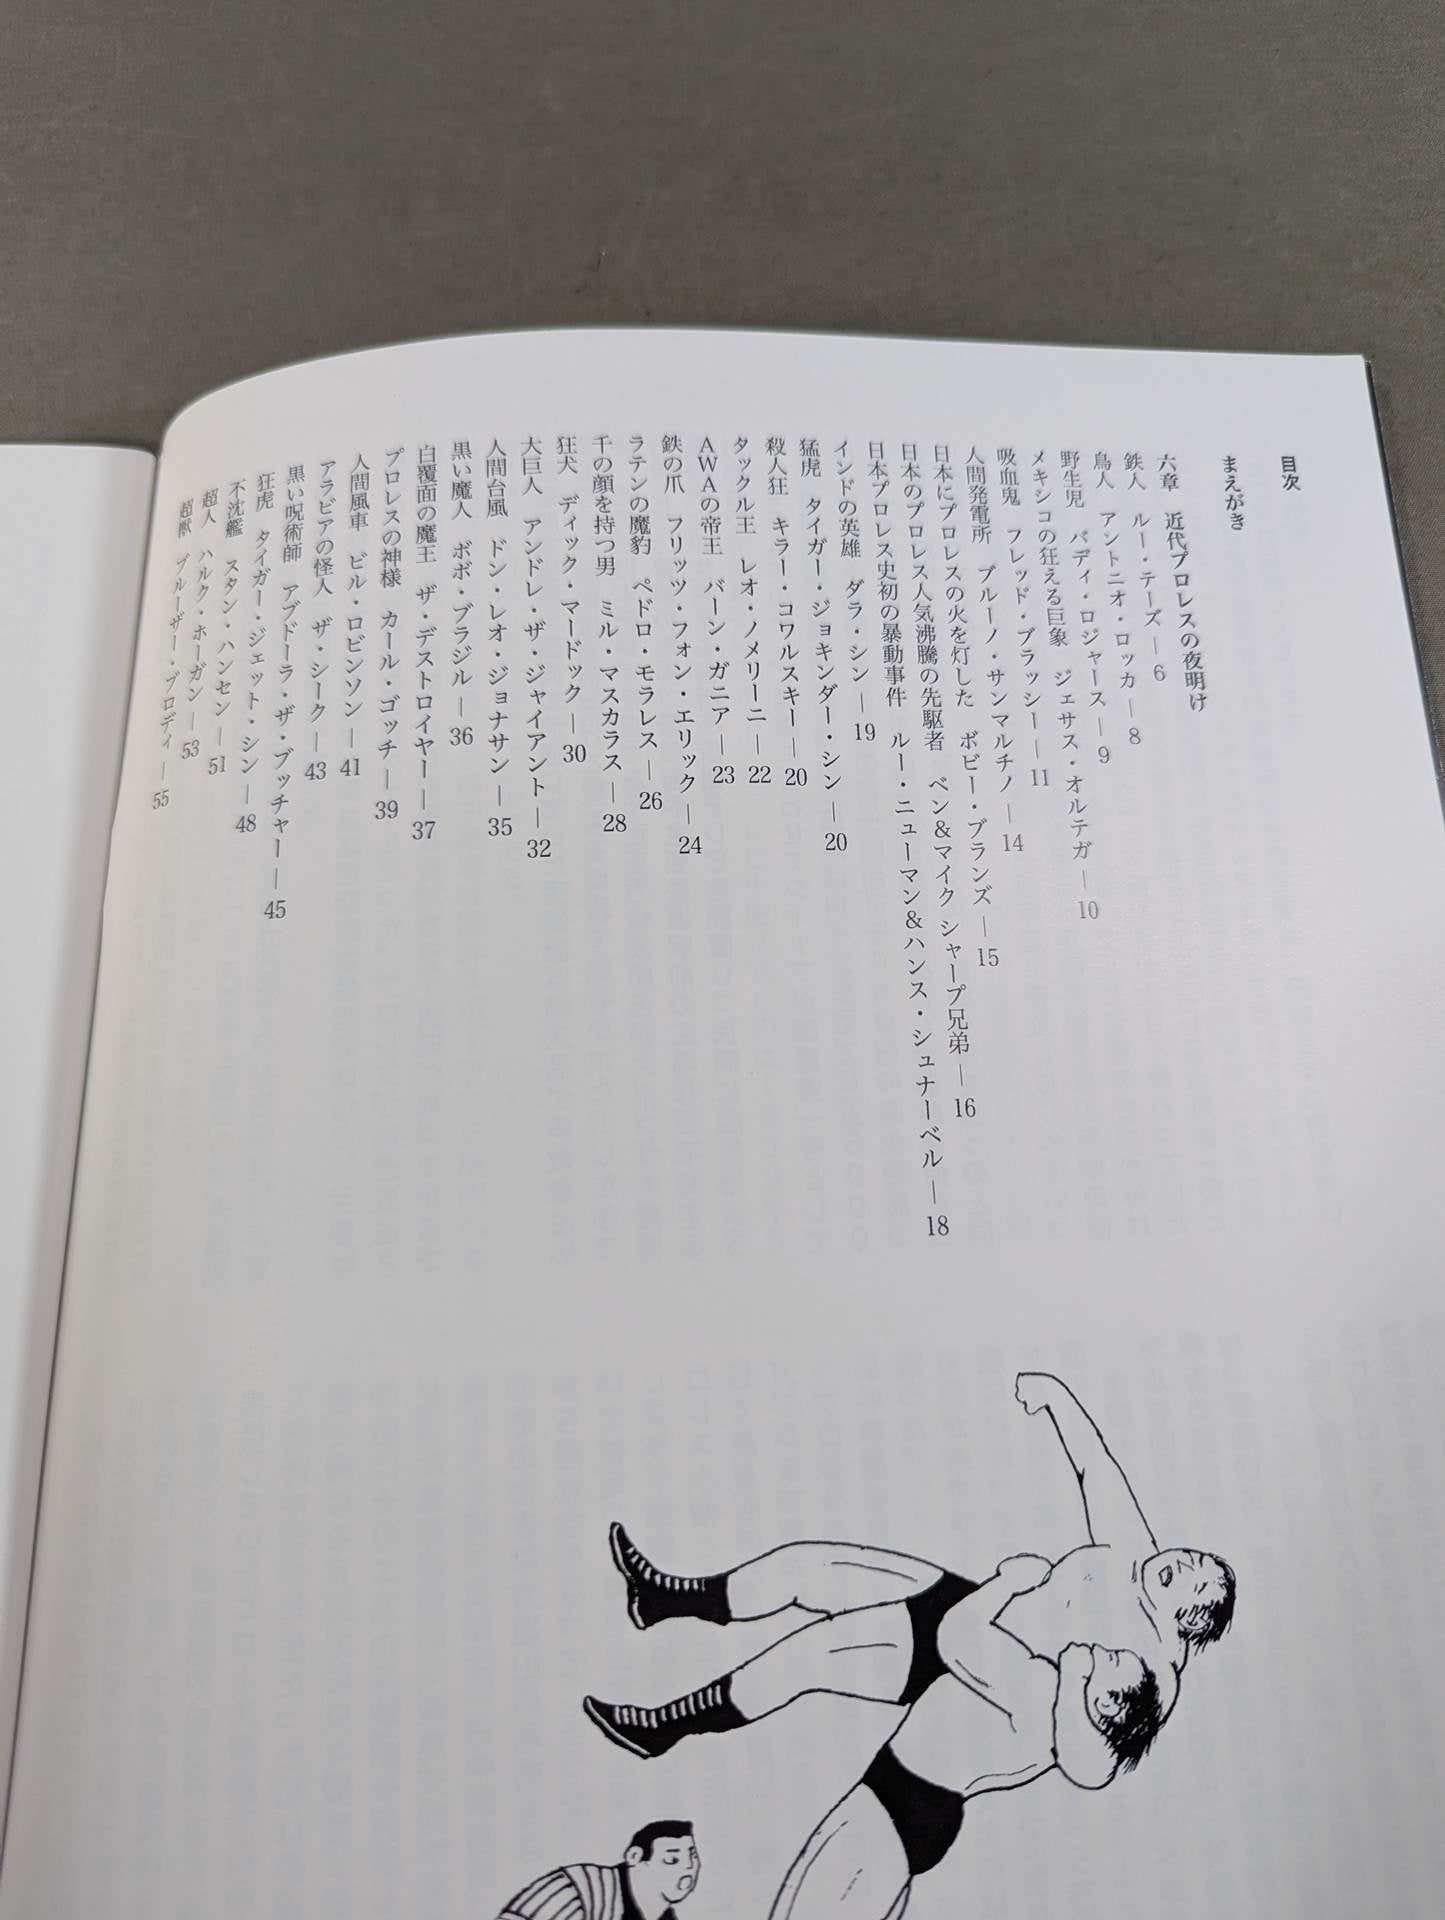 目次
まえがき
六章 近代プロレスの夜明け
鉄人 ルー・テーズ—6
鳥人 アントニオ・ロッカ—8
野生児 バディ・ロジャース—9
メキシコの狂える巨象 ジェサス・オルテガ—10
吸血鬼 フレッド・ブラッシー—11
人間発電所 ブルーノ・サンマルチノ—14
日本にプロレスの火を灯した ボビー・ブランズ—15
日本のプロレス人気沸騰の先駆者 ベン&マイク シャープ兄弟—16
日本プロレス史初の暴動事件 ルー・ニューマン&ハンス・シュナーベル—18
インドの英雄 ダラ・シン—19
猛虎 タイガー・ジョキンダー・シン—20
殺人狂 キラー・コワルスキー—20
タックル王 レオ・ノメリーニ—22
AWAの帝王 バーン・ガニア—23
鉄の爪 フリッツ・フォン・エリック—24
ラテンの魔豹 ペドロ・モラレス—26
千の顔を持つ男 ミル・マスカラス—28
狂犬 ディック・マードック—30
大巨人 アンドレ・ザ・ジャイアント—32
人間台風 ドン・レオ・ジョナサン—35
黒い魔人 ボボ・ブラジル—36
白覆面の魔王 ザ・デストロイヤー—37
プロレスの神様 カール・ゴッチ—39
人間風車 ビル・ロビンソン—41
アラビアの怪人 ザ・シーク—43
黒い呪術師 アブドーラ・ザ・ブッチャー—45
狂虎 タイガー・ジェット・シン—48
不沈艦 スタン・ハンセン—51
超人 ハルク・ホーガン—53
超獣 ブルーザー・ブロディ—55